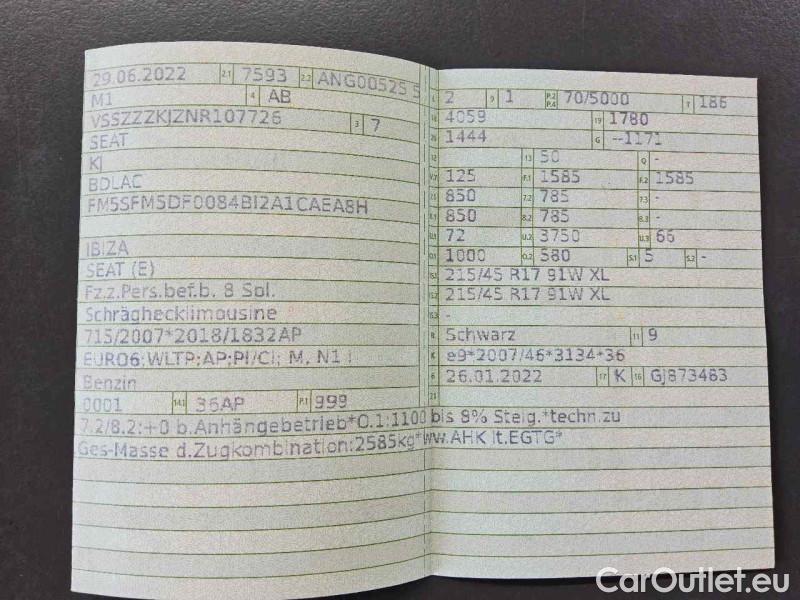 29.06.2022 2.1 7593 2.2 ANG00525 5
M1 4 AB
VSSZZZKJZNR107726 3 7
SEAT
KJ
BDLAC
FM5SFM5DF0084BI2A1CAEA8H
IBIZA
SEAT (E)
Fz.z.Pers.bef.b. 8 Spl.
Schräghecklimousine
715/2007*2018/1832AP
EURO6;WLTP;AP;PI/CI; M, N1 I
Benzin
0001 14.1 36AP P.1 999
L 2 9 1 P.2 P.4 70/5000 T 186
18 4059 19 1780
20 1444 G --1171
12 - 13 50 Q -
V.7 125 F.1 1585 F.2 1585
7.1 850 7.2 785 7.3 -
8.1 850 8.2 785 8.3 -
U.1 72 U.2 3750 U.3 66
O.1 1000 O.2 580 S.1 5 S.2 -
15.1 215/45 R17 91W XL
15.2 215/45 R17 91W XL
15.3 -
R Schwarz 11 9
K e9*2007/46*3134*36
6 26.01.2022 17 K 16 GJ873483
21
7.2/8.2:+0 b.Anhängebetrieb*O.1:1100 bis 8% Steig.*techn.zu
.Ges-Masse d.Zugkombination:2585kg*ww.AHK lt.EGTG*
CarOutlet.eu